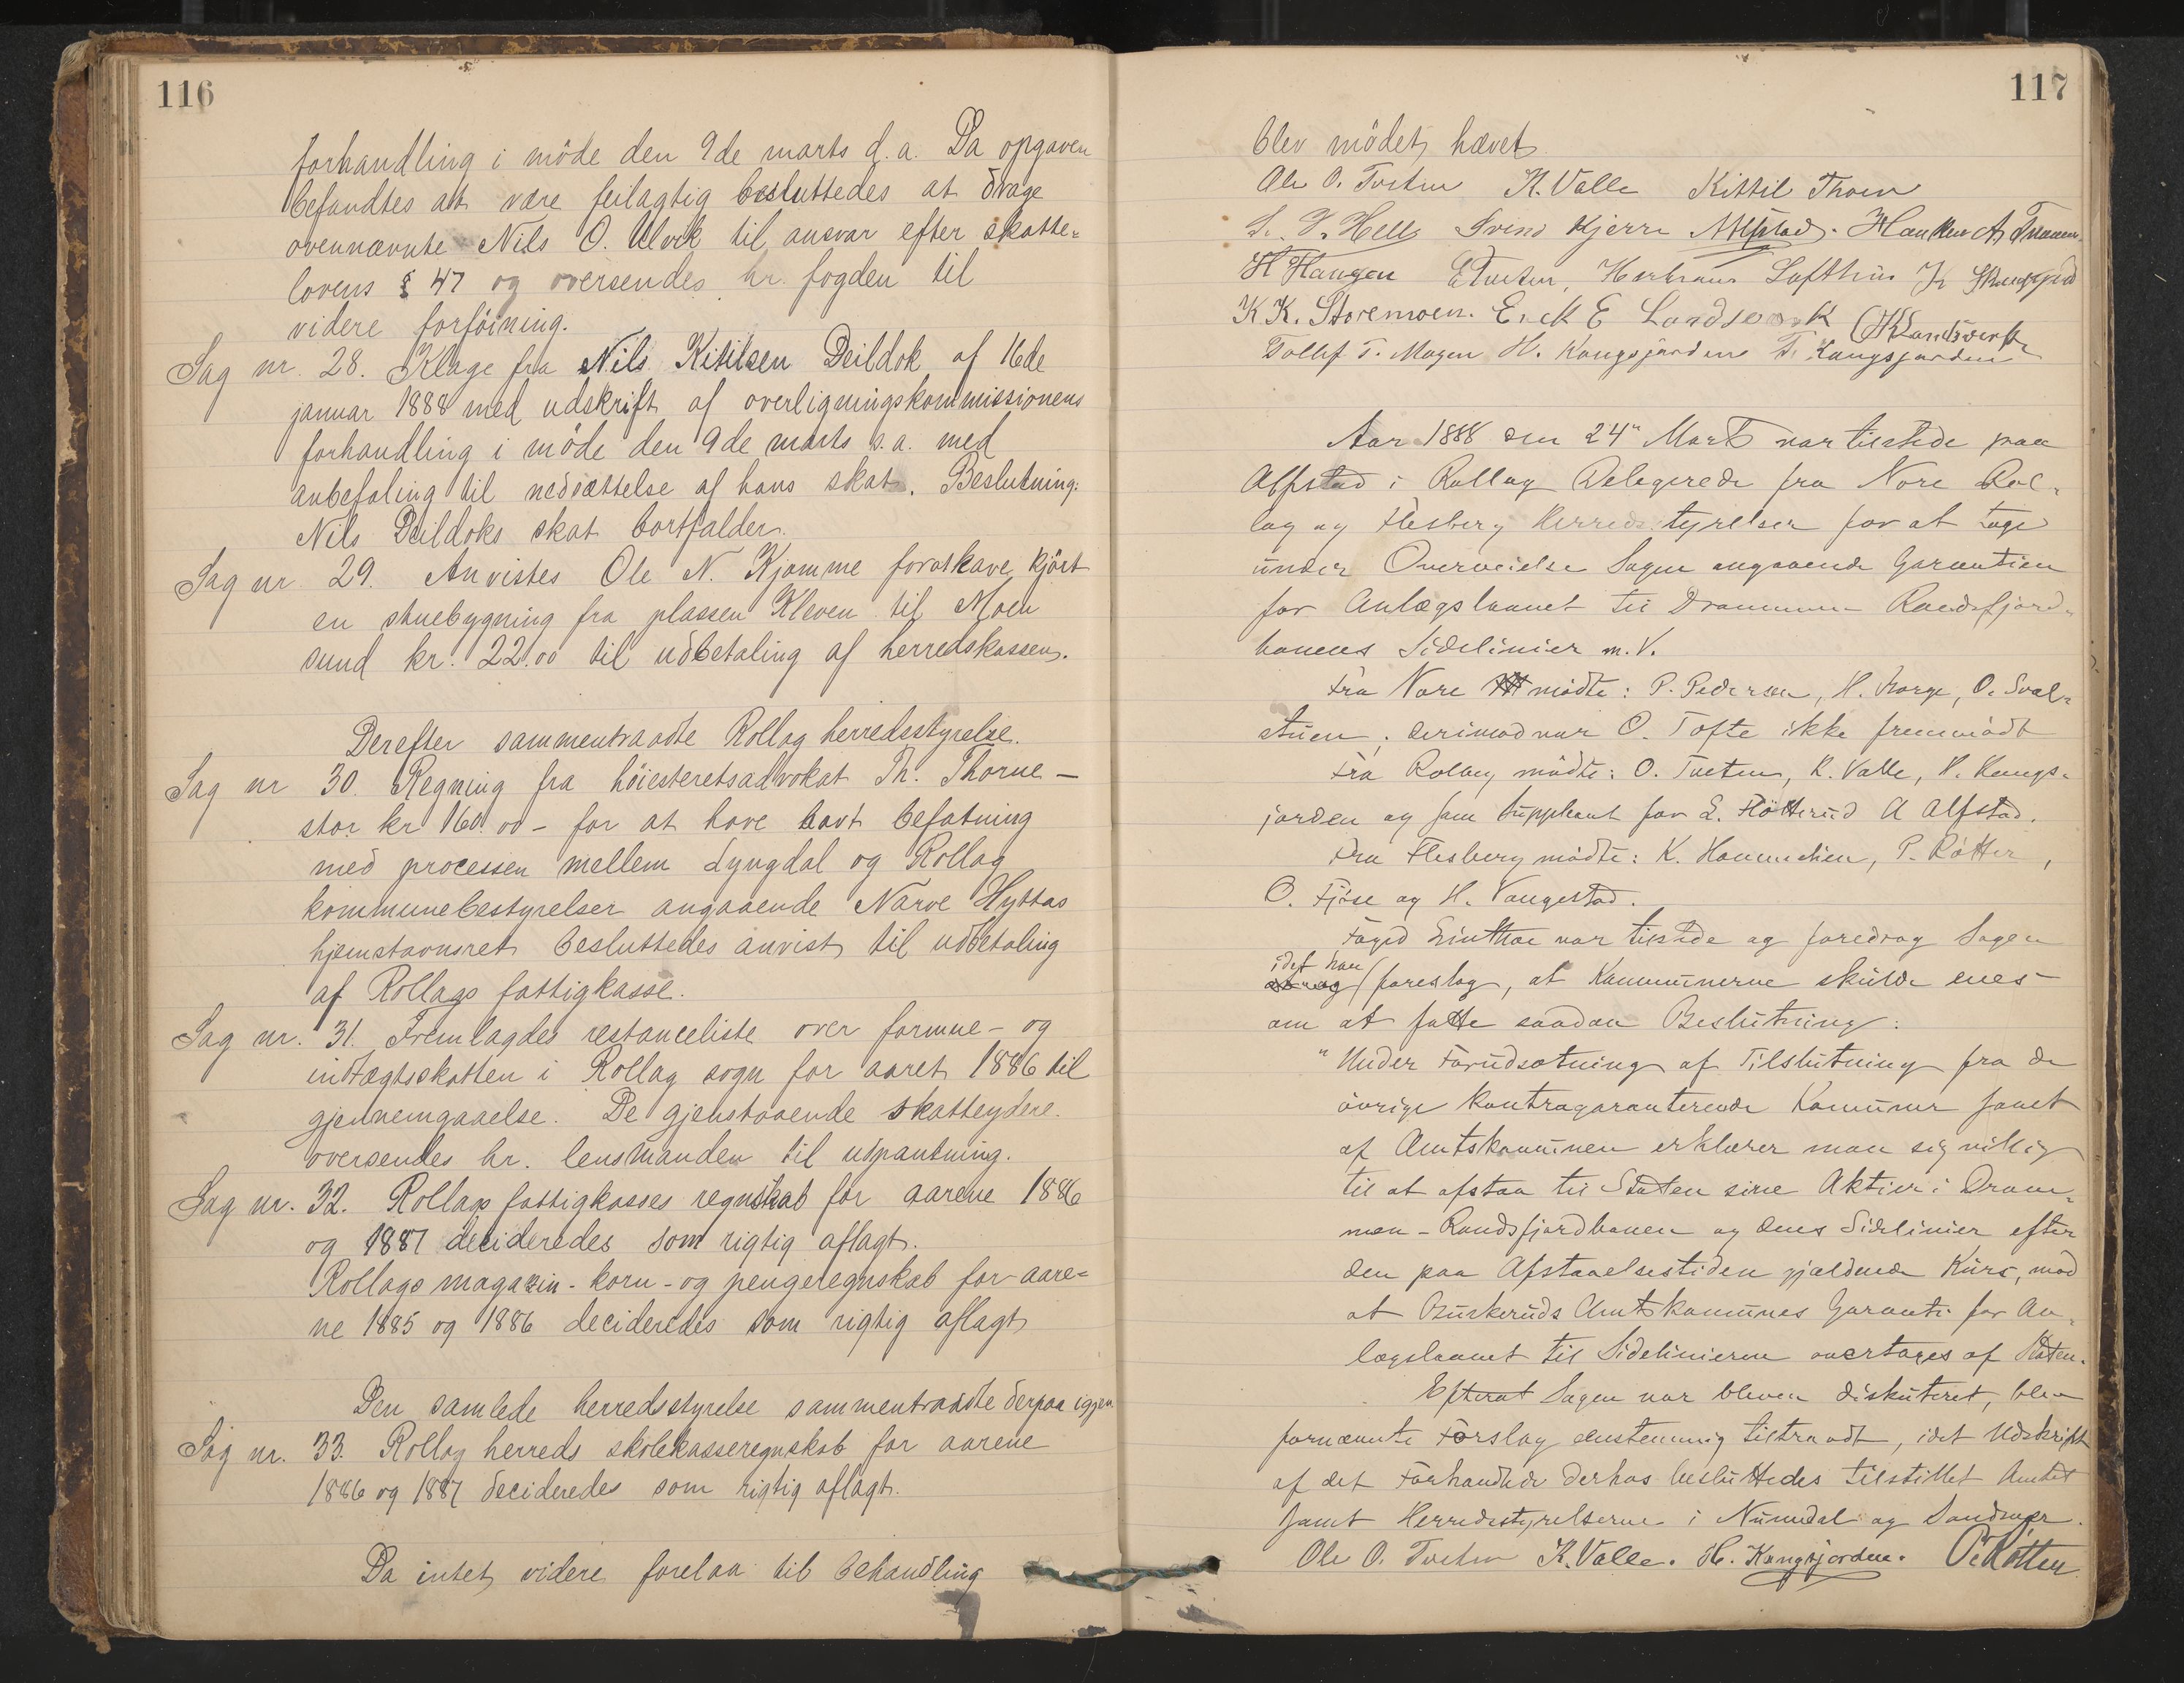 116
forhandling i møde den 9de marts d.a. Da opgaven
befandtes at være feilagtig besluttedes at drage
ovennævnte Nils O. Ulvik til ansvar efter skatte=
lovens § 47 og oversendes hr. fogden til
videre forföining.
Sag nr. 28. Klage fra Nils Kitilsen Deildok af 16de
januar 1888 med udskrift af overligningskommissionens
forhandling i möde den 9de marts s.a. med
anbefaling til nedsættelse af hans skat. Beslutning:
Nils Deildoks skat bortfalder.
Sag nr 29. Anvistes Ole N. Kjomme for at have kjört
en stuebygning fra plassen Kleven til Moen
sund kr. 22.00 til udbetaling af herredskassen.
Derefter sammentraadte Rollag herredsstyrelse.
Sag nr 30. Regning fra höiesteretsadvokat Th. Thorne –
stor kr 160.00 – for at have havt befatning
med processen mellem Lyngdal og Rollag
kommunebestyrelser angaaende Narve Hyttas
hjemstavnsret besluttedes anvist til udbetaling
af Rollags fattigkasse.
Sag nr. 31. Fremlagdes restanceliste over formue- og
indtægtsskatten i Rollag sogn for aaret 1886 til
gjennemgaaelse. De gjenstaaende skatteydere
oversendes hr. lensmanden til udpantning.
Sag nr. 32. Rollags fattigkasses regnskab for aarene 1886
og 1887 decideredes som rigtig aflagt.
Rollags magazin- korn- og pengeregnskab for aare=
ne 1885 og 1886 decideredes som rigtig aflagt
Den samlede herredsstyrelse sammentraadte derpaa igjen
Sag nr. 33. Rollag herreds skolekasseregnskab for aarene
1886 og 1887 decideredes som rigtig aflagt.
Da intet videre forelaa til behandling
117
blev mödet hævet
Ole O. Tveten K. Valle Kittil Thoen
Svend Kjerre AAlfstad.
H Haugen ETveten, Lofthus
K K. Storemoen. Erik E Landsverk OKLandsverk
Tollef T. Mogen H. Kongsjorden T. Kongsjorden
Aar 1888 den 24" Marts var tilstede paa
Alfstad i Rollag Delegerede fra Nore Rol-
lag og Flesberg Herredsstyrelser for at tage
under Overveielse Sagen angaaende Garantien
for Anlægslaanet til Drammen-Randsfjord-
banens Sidelinier m.V.
Fra Nore mödte: P. Pedersen, H. Borge, O. Sval-
stuen, derimod var O. Tofte ikke fremmödt
Fra Rollag mödte: O. Tveten, K. Valle, H. Kongs-
jorden og som Suppleant for E. Fløtterud A Alfstad.
Fra Flesberg mödte: K. P. Røtter,
O. Fjöse og H. Vangestad.
Foged var tilstede og foredrog Sagen
idet han foreslog, at Kommunerne skulde enes
om at fatte saadan Beslutning:
"Under Forudsætning af Tilslutning fra de
øvrige kontragaranterende Komuner samt
af Amtskomunen erklærer man sig villig
til at afstaa til Staten sine Aktier i Dram-
men-Randsfjordbanen og dens Sidelinier efter
den paa Afstaaelsestiden gjældende Kurs, mod
at Buskeruds Amtskomunes Garanti for An-
lægslaanet til Sidelinierne overtages af Staten.
Efterat Sagen var bleven diskuteret, blev
fornævnte Forslag enstemmig tiltraadt, idet Udskrift
af det Forhandlede derhos besluttedes tilstillet Amtet
samt Herredsstyrelserne i Numedal og Sandsvær.
Ole O. Tveten K. Valle. H. Kongsjorden. P. Røtter